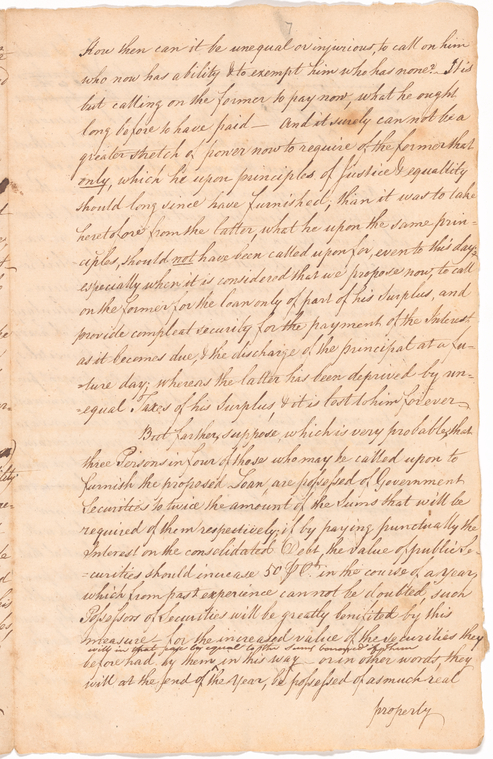 7
How then can it be unequal or injurious, to call on him
who now has ability & to exempt him who has none? It is
but calling on the former to pay now, what he ought
long before to have paid — And it surely cannot be a
greater stretch of power now to require of the former that
only, which he upon principles of justice & equallity
should long since have furnished; than it was to take
heretofore from the latter, what he upon the same prin=
ciples, should not have been called upon for, even to this day;
especially when it is considered that we propose now, to call
on the former for the loan only of part of his Surplus, and
provide compleat security for the payment of the Interest
as it becomes due, & the discharge of the principal at a fu=
=ture day; whereas the latter has been deprived by un=
=equal Taxes of his Surplus & it is lost to him forever —
But farther, suppose, which is very probable, that
three Persons in four of those who may be called upon to
furnish the proposed Loan, are possessed of Government
Securities to twice the amount of the Sums that will be
required of them respectively; if by paying punctually the
Interest on the consolidated Debt, the value of public Se=
=curities should increase 50 P Ct. in the course of a year,
which from past experience cannot be doubted, such
Possessors of Securities will be greatly benifited by this
measure — for the increased value of the Securities they
will in that case be equal to the Sums borrowed of them
before had, by them, in this way or in other words, they
will at the end of the Year, be possessed of as much real
property